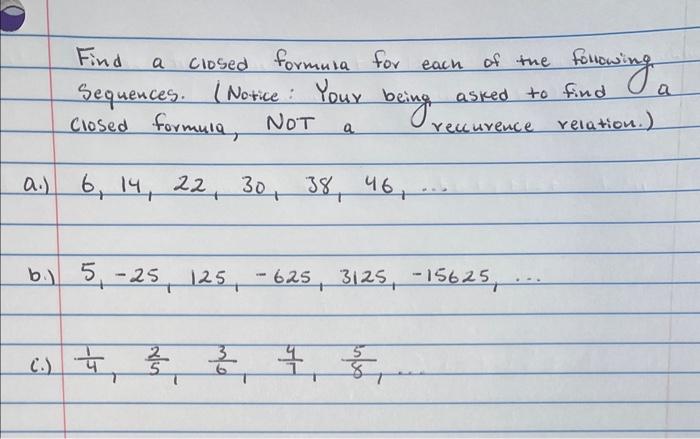 Find a closed formula for each of the following
Sequences. (Notice: Your being asked to find a
closed formula, NOT a reccurence relation.)
a.) 6, 14, 22, 30, 38, 46, ...
b.) 5, -25, 125, -625, 3125, -15625, ...
c.) 1/4, 2/5, 3/6, 4/7, 5/8, ...